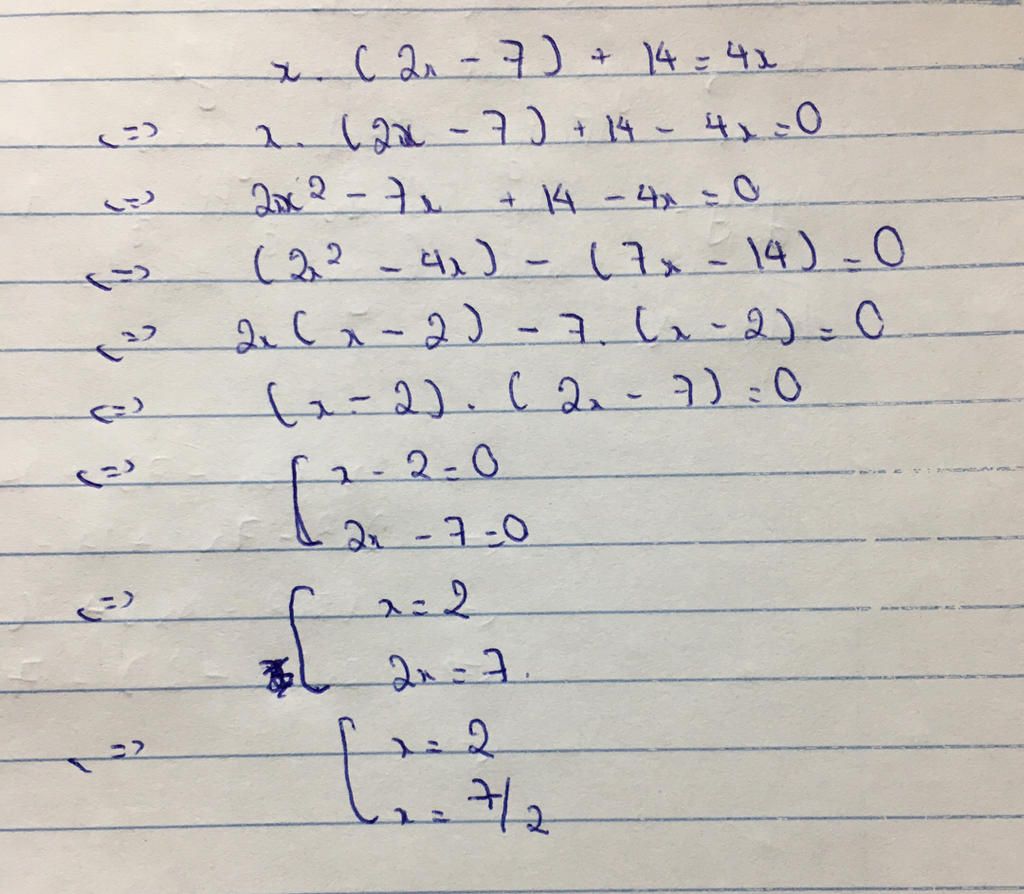 x. (2x - 7) + 14 = 4x
<=> x. (2x - 7) + 14 - 4x = 0
<=> 2x² - 7x + 14 - 4x = 0
<=> (2x² - 4x) - (7x - 14) = 0
<=> 2x (x - 2) - 7. (x - 2) = 0
<=> (x - 2). (2x - 7) = 0
<=> [ x - 2 = 0
2x - 7 = 0
<=> [ x = 2
2x = 7.
<=> [ x = 2
x = 7/2